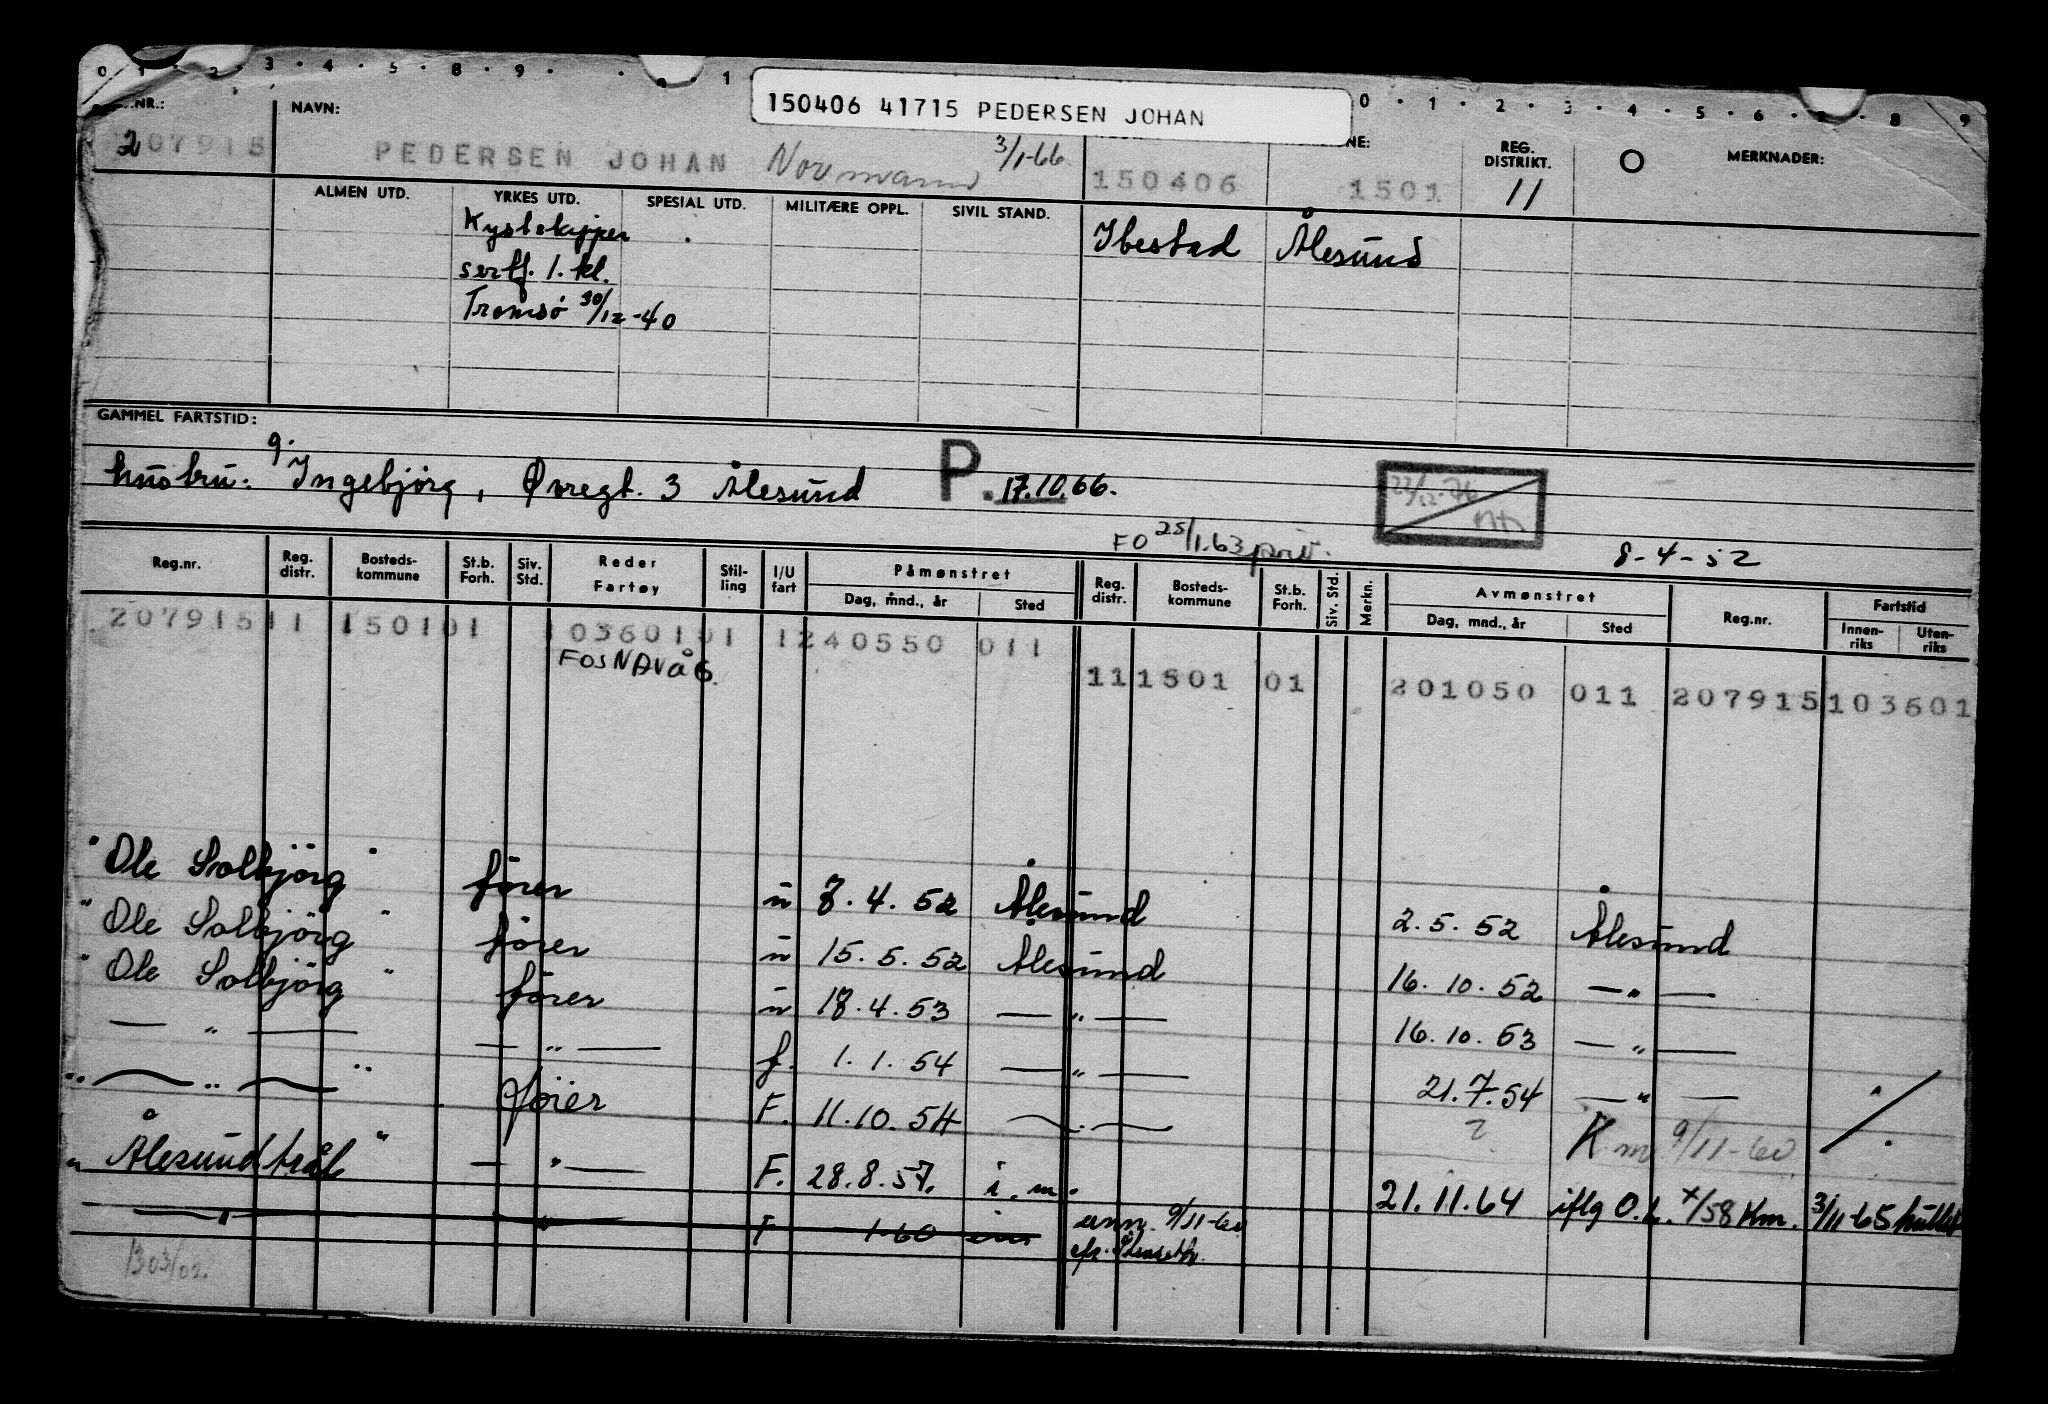 0 1 2 3 4 5 8 9 0 1 0 1 2 3 4 5 6 8 9
150406 41715 PEDERSEN JOHAN
NR.: NAVN: NE: REG. DISTRIKT. MERKNADER:
207915 PEDERSEN JOHAN Normann 3/1-66 150406 1501 11
ALMEN UTD. YRKES UTD. SPESIAL UTD. MILITÆRE OPPL. SIVIL STAND.
Kystskipper Ibestad Ålesund
sertf. 1. kl.
Tromsø 30/12-40
GAMMEL FARTSTID:
g.
hustru: Ingebjörg, Øvregt. 3 Ålesund P. 17.10.66. 22/12-76
FO 25/1.63 priv. 8-4-52
Reg.nr. Reg. distr. Bosteds-kommune St.b. Forh. Siv. Std. Reder Fartøy Stil-ling I/U fart Påmønstret Dag, mnd., år Sted Reg. distr. Bosteds-kommune St.b. Forh. Siv. Std. Merkn. Avmønstret Dag, mnd., år Sted Reg.nr. Fartstid Innen-riks Uten-riks
207915 11 1501 01 10360101 1 240550 011
FOSNAVÅG.
11 1501 01 201050 011 207915 103601
"Ole Solbjörg" förer u 8.4.52 Ålesund 2.5.52 Ålesund
"Ole Solbjörg" förer u 15.5.52 Ålesund 16.10.52 — " —
"Ole Solbjörg" förer u 18.4.53 — " — 16.10.53 — " —
— " — — " — f. 1.1.54 — " — 21.7.54 — " —
" — " — " förer F. 11.10.54 — " — ? Km 9/11-60
"Ålesundtrål" — " — F. 28.8.57. i.m. 21.11.64 iflg O.k. x/58 Km. 3/11-65
— " — " F 1.60 ann. 9/11-60
1303/02.